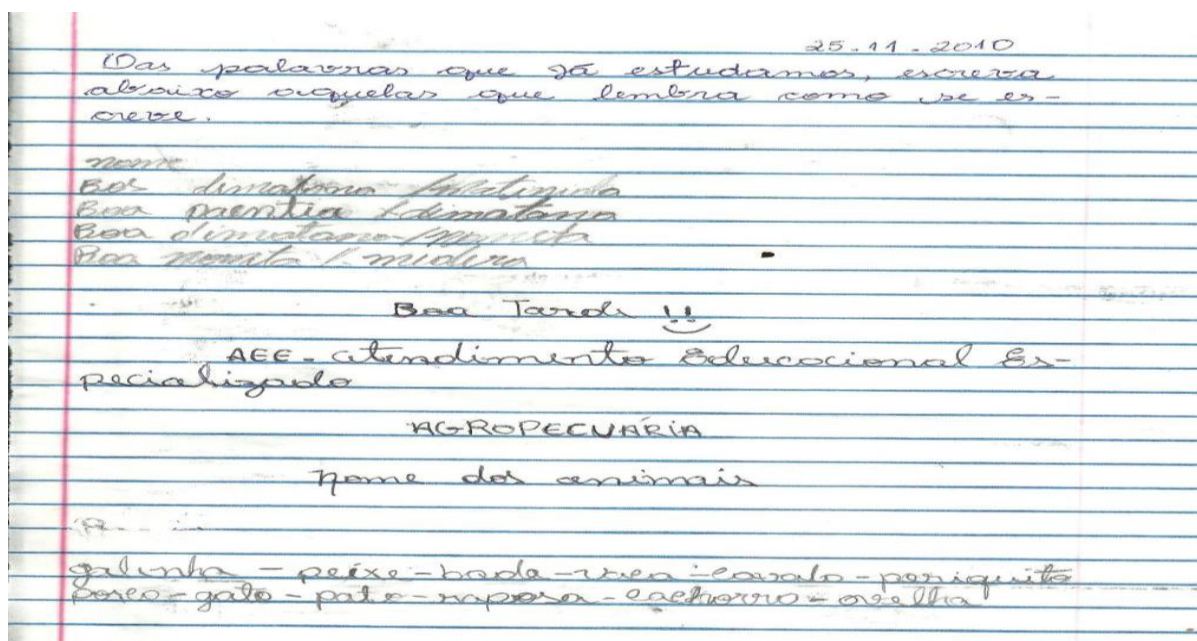 25.11.2010
Das palavras que já estudamos, escreva
abaixo aquelas que lembra como se es-
creve.
nome
Boa
Boa paentia / dimatana
Boa dimatano
Boa
Boa Tarde !!
AEE - Atendimento Educacional Es-
pecializado
AGROPECUÁRIA
Nome dos animais
galinha - peixe - boda - vaca - cavalo - periquito
porco - gato - pato - raposa - cachorro - ovelha